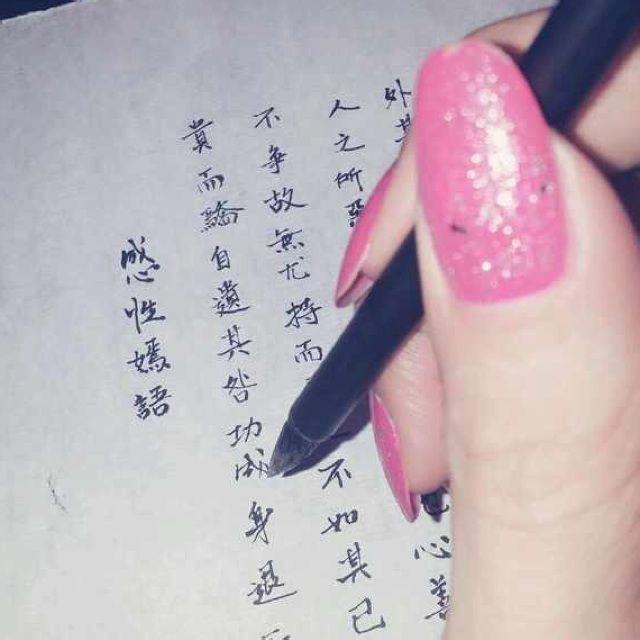 外其
人之所惡 心善
不爭故無尤持而 不如其已
貴而驕自遺其咎功成身退
感性嫣語